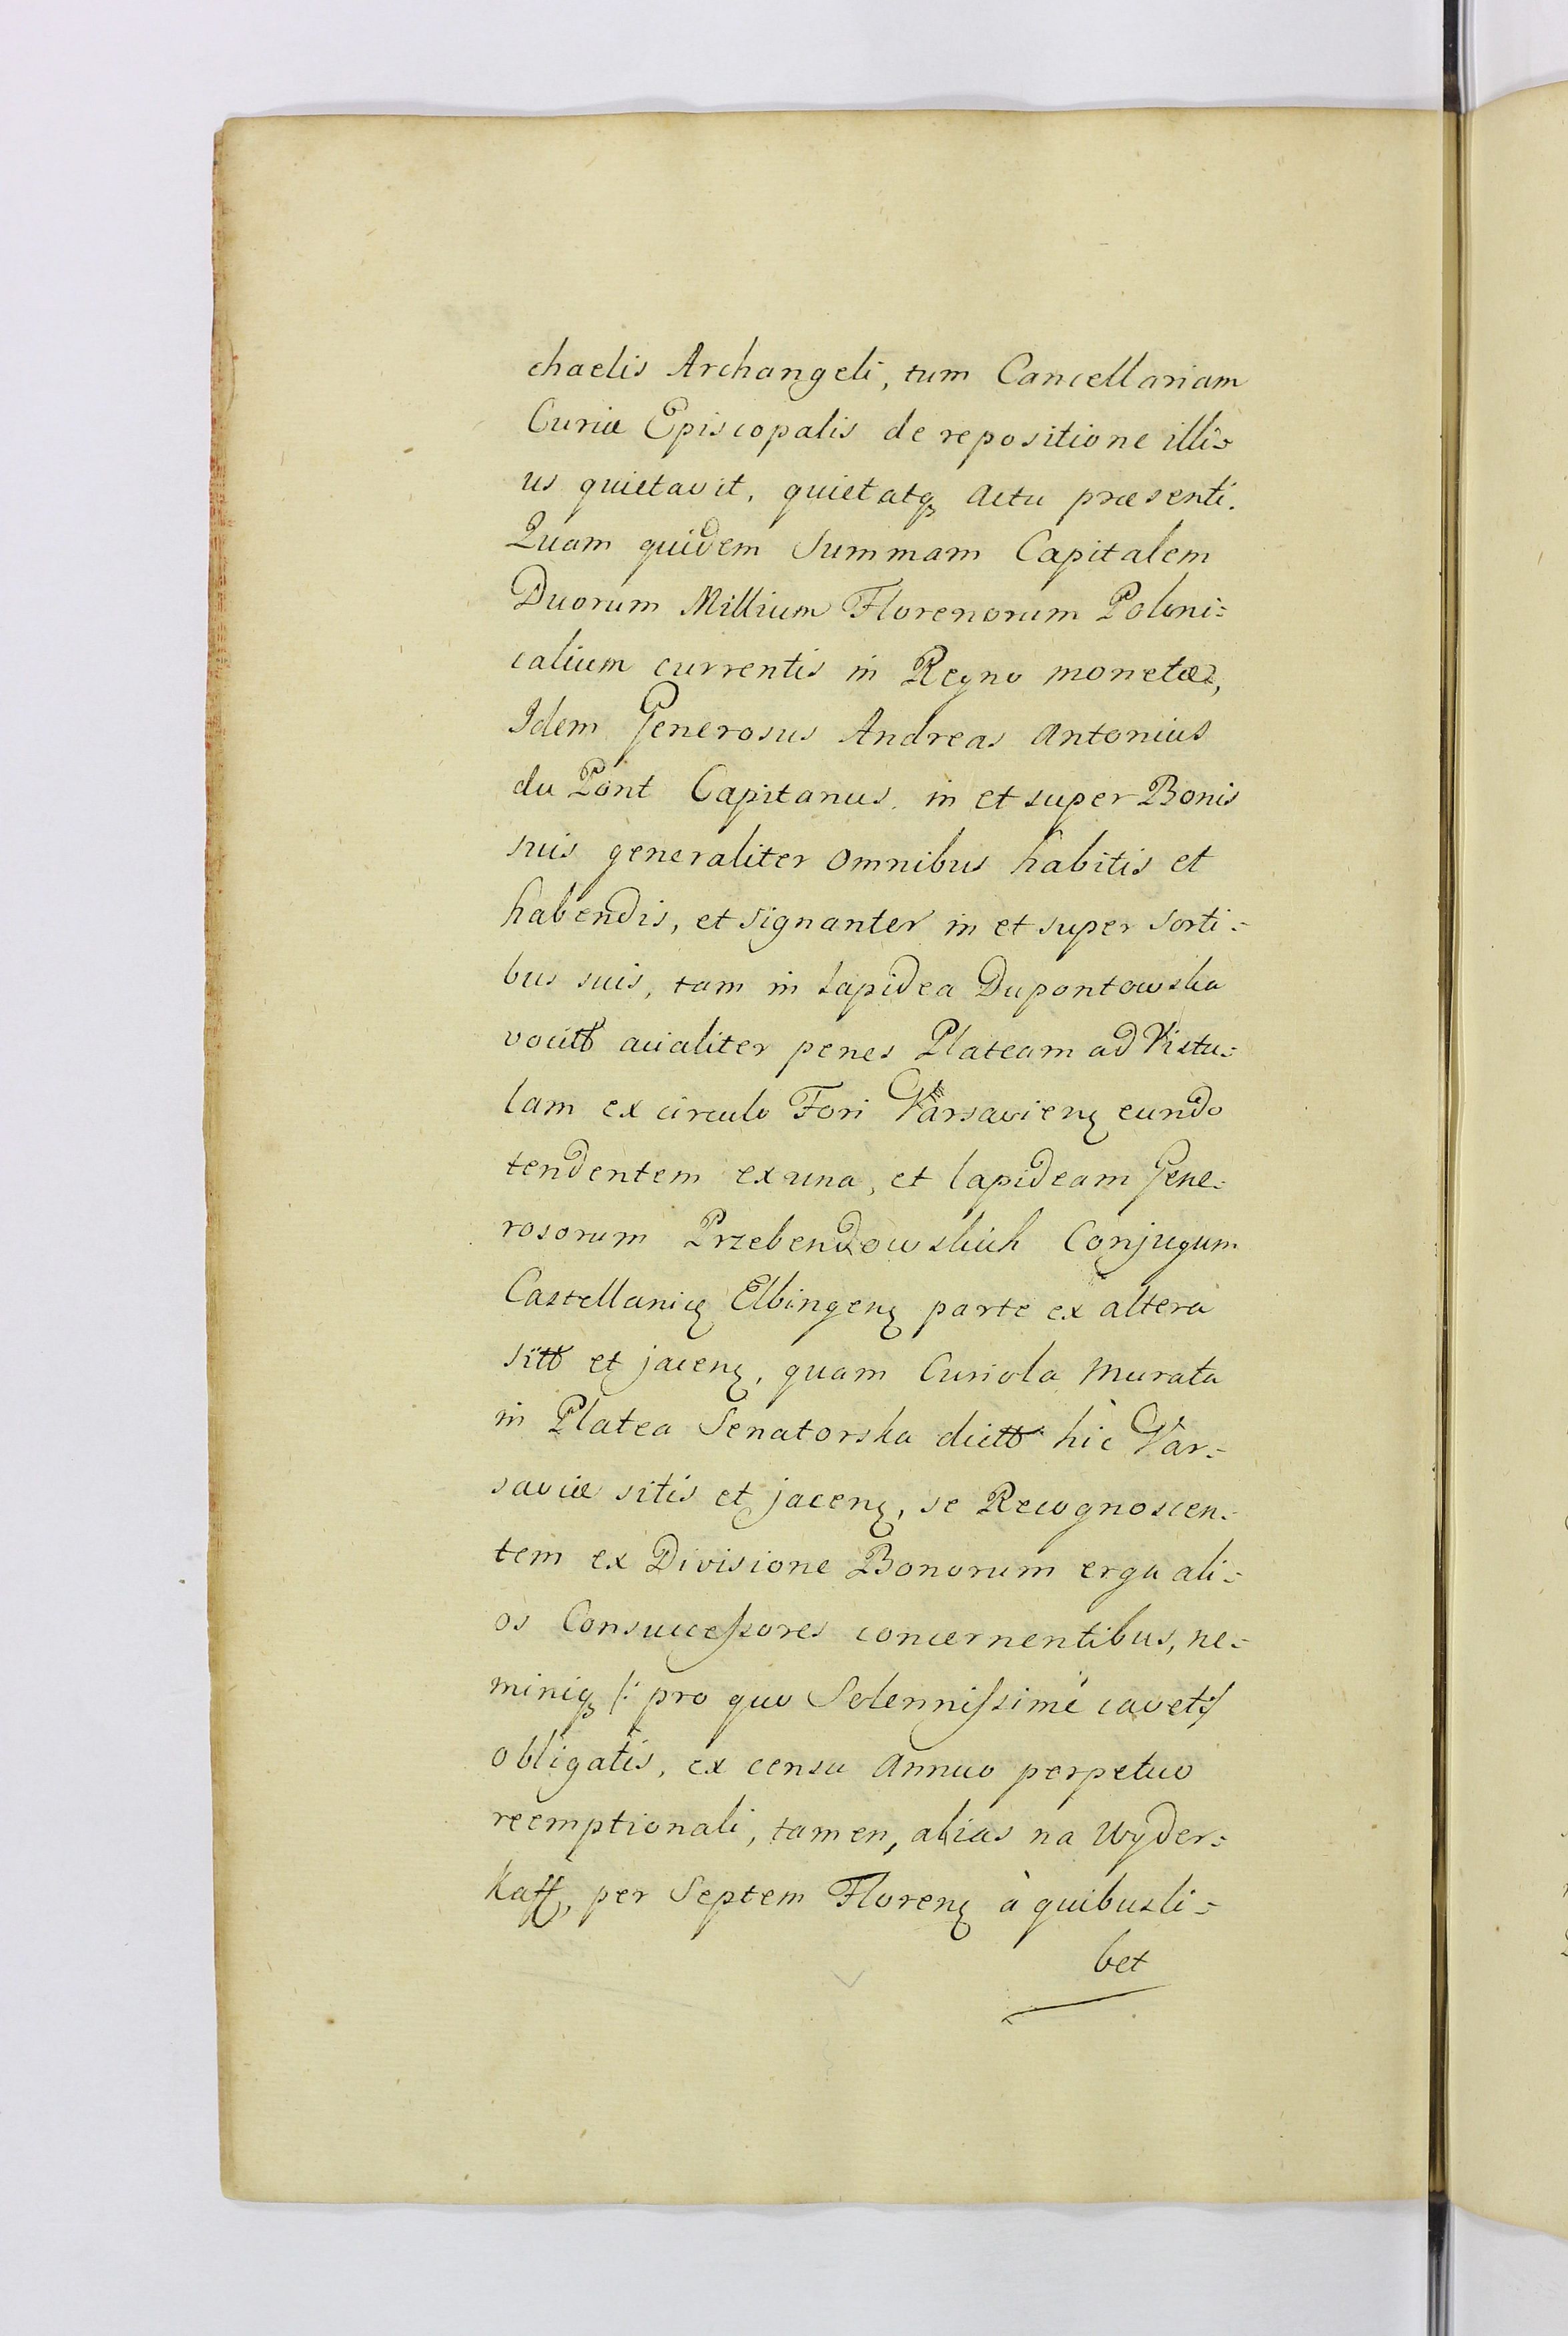 chaelis Archangeli, tum Cancellariam
Curiæ Episcopalis de repositione illi=
us quietavit, quietatqꝫ actu præsenti.
Quam quidem Summam Capitalem
Duorum Millium Florenorum Poloni=
calium currentis in Regno monetæ,
Idem Generosus Andreas Antonius
du Pont Capitanus in et super Bonis
suis generaliter omnibus habitis et
habendis, et signanter in et super sorti=
bus suis, tam in Lapidea Dupontowska
vocitt acialiter penes Plateam ad Vistu=
lam ex circulo Fori Varsavienꝫ eundo
tendentem ex una, et lapideam Gene=
rosorum Przebendowskich Conjugum
Castellanicꝫ Elbingenꝫ parte ex altera
sitt et jacenꝫ, quam Curiola Murata
in Platea Senatorska dictt hic Var=
saviæ sitis et jacenꝫ, se Recognoscen=
tem ex Divisione Bonorum erga ali=
os Consuccessores concernentibus, ne=
miniqꝫ /: pro quo Solennissimè cavet :/
obligatis, ex censu annuo perpetuo
reemptionali, tamen, alias na Wyder=
kaff, per Septem Florenꝫ à quibusli=
bet